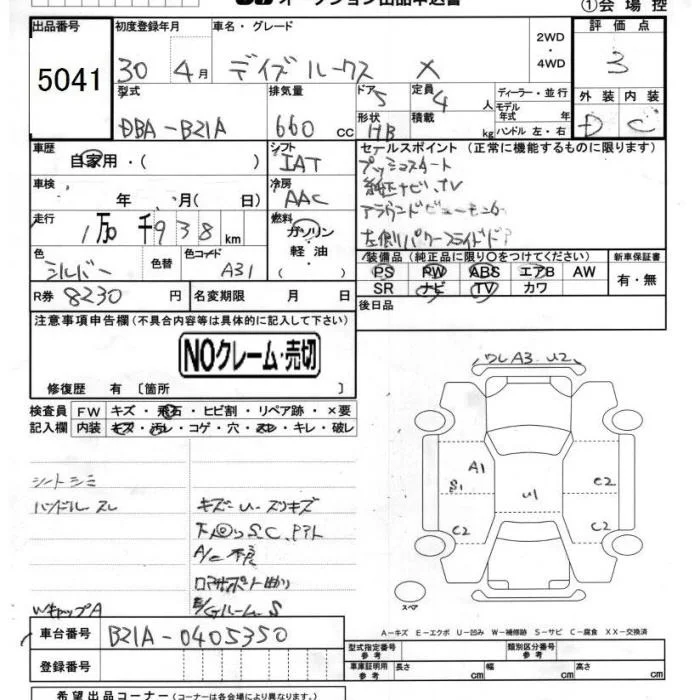 オークション出品申込書
①会場控
出品番号 初度登録年月 車名・グレード 2WD・4WD 評価点
5041 30 4月 デイズルークス X 3
型式 排気量 ドア 定員 ディーラー・並行 外装 内装
DBA-B21A 660 cc 5 4人 モデル年式 年 D C
形状 積載 kg ハンドル 左・右
HB
車歴 自家用・( ) シフト IAT セールスポイント(正常に機能するものに限ります)
車検 年 月( 日) 冷房 AAC プッシュスタート
純正ナビ、TV
走行 1万0千938km 燃料 ガソリン・軽油・ アラウンドビューモニター
左側パワースライドドア
色 シルバー 色替 色コード A31 装備品(純正品に限り○をつけてください) 新車保証書
PS PW ABS エアB AW 有・無
SR ナビ TV カワ
R券 8230円 名変期限 月 日 後日品
注意事項申告欄(不具合内容等は具体的に記入して下さい)
NOクレーム・売切
修復歴 有〔箇所 〕
検査員 FW キズ・飛石・ヒビ割・リペア跡・×要
記入欄 内装 キズ・汚レ・コゲ・穴・スレ・キレ・破レ
シートシミ
ハンドルスレ キズ-U-スリキズ
下回りS.C.
A/C不良
曲り
WキャップA E/Gルーム S
ワレA3 U2
A1
S1
C2
U1
C2
C2
スペア
A-キズ E-エクボ U-凹み W-補修跡 S-サビ C-腐食 XX-交換済
車台番号 B21A-0405350 型式指定番号 参考 類別区分番号 参考
登録番号 車庫証明用 参考 長さ cm 幅 cm 高さ cm
希望出品コーナー(コーナーは各会場により異なります。)